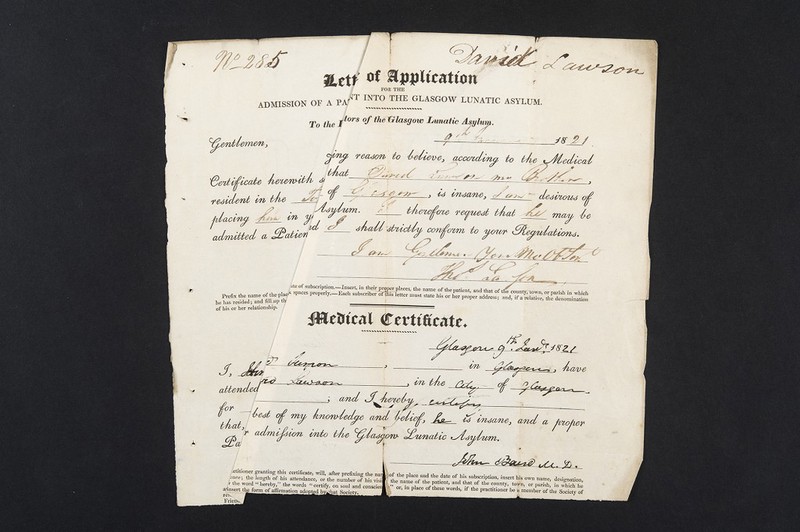 No 285 David Lawson
Lett of Application
FOR THE
ADMISSION OF A PA NT INTO THE GLASGOW LUNATIC ASYLUM.
To the tors of the Glasgow Lunatic Asylum.
9th 1821
Gentlemen,
ing reason to believe, according to the Medical
Certificate herewith that David Lawson my Brother,
resident in the of Glasgow, is insane, I am desirous of
placing him in y Asylum. I therefore request that he may be
admitted a Patien d I shall strictly conform to your Regulations.
I am Gentlemen Your Mo Ob Sert
Thos Lawson
ate of subscription.—Insert, in their proper places, the name of the patient, and that of the county, town, or parish in which
Prefix the name of the place spaces properly.—Each subscriber of this letter must state his or her proper address; and, if a relative, the denomination
he has resided; and fill up th
of his or her relationship.
Medical Certificate.
Glasgow 9th Jany. 1821
I, in Glasgow, have
attended Lawson, in the City of Glasgow
for ; and I hereby certify
that, best of my knowledge and belief, he is insane, and a proper
Pa r admission into the Glasgow Lunatic Asylum.
John Baird M.D.
ctitioner granting this certificate, will, after prefixing the na of the place and the date of his subscription, insert his own name, designation,
ence; the length of his attendance, or the number of his visi the name of the patient, and that of the county, town, or parish, in which he
the word "hereby," the words "certify, on soul and conscien " or, in place of these words, if the practitioner be a member of the Society of
insert the form of affirmation adopted by that Society.
Frien